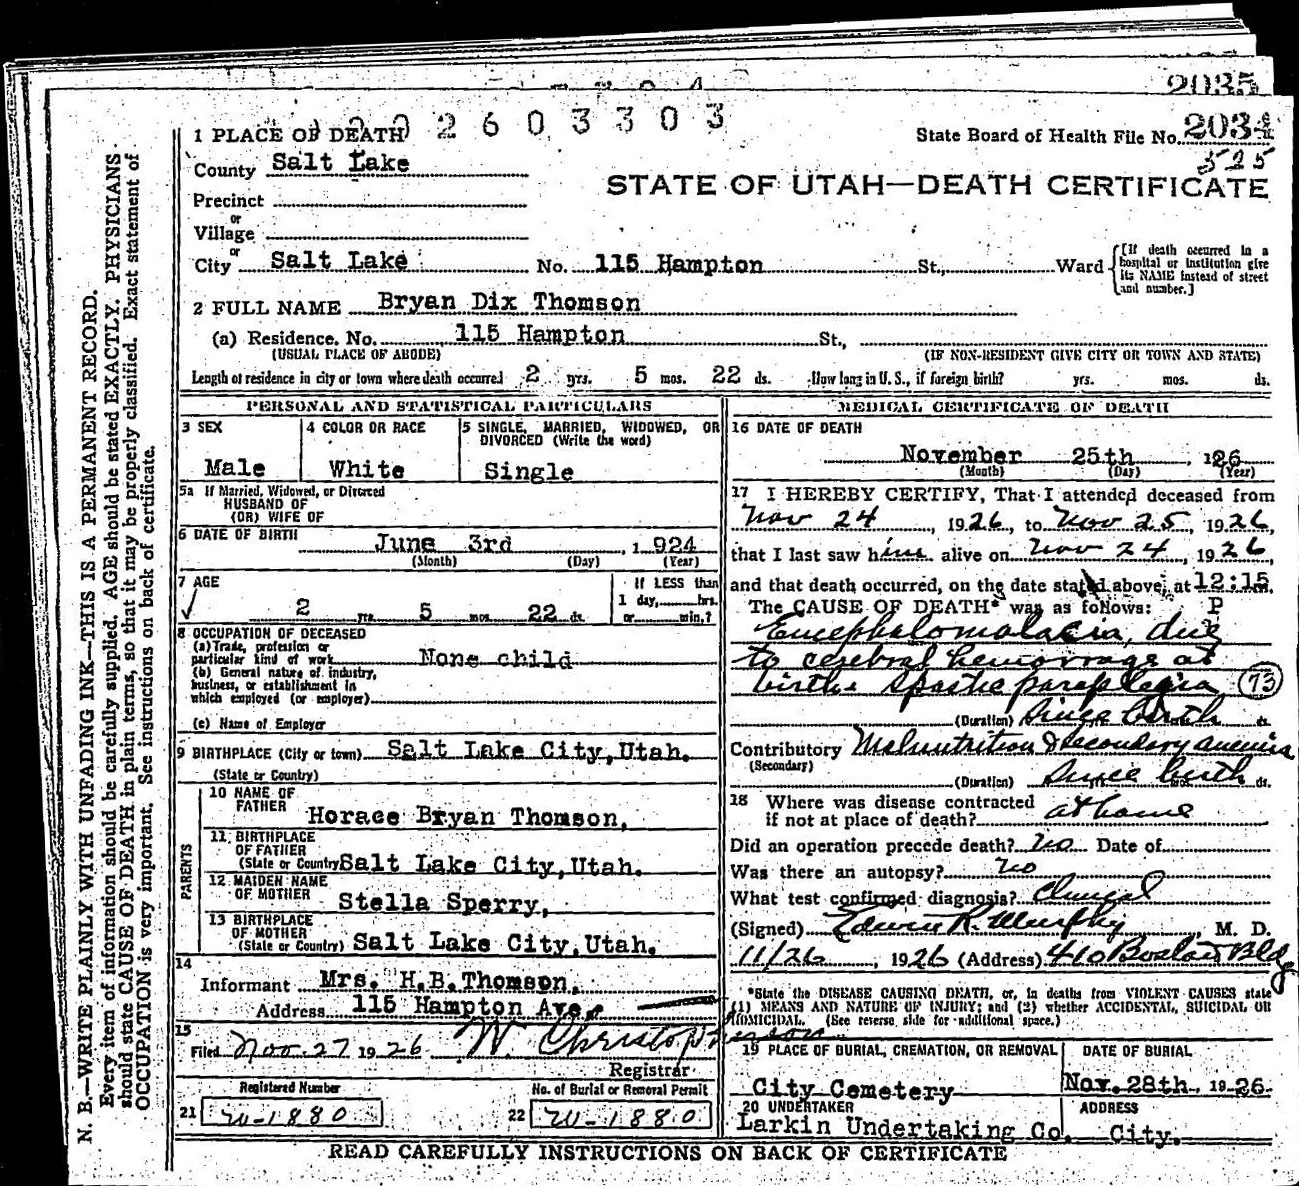 2035
2 6 0 3 3 0 3
1 PLACE OF DEATH State Board of Health File No. 2034
525
County Salt Lake
STATE OF UTAH—DEATH CERTIFICATE
Precinct
or
Village
or
City Salt Lake No. 115 Hampton St., Ward
[If death occurred in a hospital or institution give its NAME instead of street and number.]
2 FULL NAME Bryan Dix Thomson
(a) Residence. No. 115 Hampton St.,
(USUAL PLACE OF ABODE) (IF NON-RESIDENT GIVE CITY OR TOWN AND STATE)
Length of residence in city or town where death occurred 2 yrs. 5 mos. 22 ds. How long in U. S., if foreign birth? yrs. mos. ds.
PERSONAL AND STATISTICAL PARTICULARS
3 SEX
Male
4 COLOR OR RACE
White
5 SINGLE, MARRIED, WIDOWED, OR
DIVORCED (Write the word)
Single
5a If Married, Widowed, or Divorced
HUSBAND OF
(OR) WIFE OF
6 DATE OF BIRTH June 3rd, 1924
(Month) (Day) (Year)
7 AGE
2 yrs. 5 mos. 22 ds.
If LESS than
1 day, hrs.
or min.?
8 OCCUPATION OF DECEASED
(a) Trade, profession or
particular kind of work None child
(b) General nature of industry,
business, or establishment in
which employed (or employer)
(c) Name of Employer
9 BIRTHPLACE (City or town) Salt Lake City, Utah.
(State or Country)
PARENTS
10 NAME OF
FATHER Horace Bryan Thomson,
11 BIRTHPLACE
OF FATHER
(State or Country Salt Lake City, Utah.
12 MAIDEN NAME
OF MOTHER Stella Sperry,
13 BIRTHPLACE
OF MOTHER
(State or Country) Salt Lake City, Utah.
14
Informant Mrs. H.B. Thomson,
Address 115 Hampton Ave,
15
Filed Nov. 27 1926 W Christopherson
Registrar
Registered Number
21 W-1880
No. of Burial or Removal Permit
22 W-1880
MEDICAL CERTIFICATE OF DEATH
16 DATE OF DEATH
November 25th, 1926
(Month) (Day) (Year)
17 I HEREBY CERTIFY, That I attended deceased from
Nov 24, 1926, to Nov 25, 1926,
that I last saw him alive on Nov 24, 1926,
and that death occurred, on the date stated above, at 12:15 m.
P
The CAUSE OF DEATH* was as follows:
Encephalomalacia, due
to cerebral hemorrage at
birth. Spastic paraplegia 73
(Duration) Since birth ds.
Contributory Malnutrition & secondary anemia
(Secondary)
(Duration) Since birth ds.
18 Where was disease contracted
if not at place of death? at home
Did an operation precede death? No Date of
Was there an autopsy? No
What test confirmed diagnosis? Clinical
(Signed) Edwin R. Murphy, M. D.
11/26, 1926 (Address) 410 Boston Bldg
*State the DISEASE CAUSING DEATH, or, in deaths from VIOLENT CAUSES state
(1) MEANS AND NATURE OF INJURY; and (2) whether ACCIDENTAL, SUICIDAL OR
HOMICIDAL. (See reverse side for additional space.)
19 PLACE OF BURIAL, CREMATION, OR REMOVAL
City Cemetery
DATE OF BURIAL
Nov. 28th, 1926.
20 UNDERTAKER
Larkin Undertaking Co.
ADDRESS
City.
READ CAREFULLY INSTRUCTIONS ON BACK OF CERTIFICATE
N. B.—WRITE PLAINLY WITH UNFADING INK—THIS IS A PERMANENT RECORD.
Every item of information should be carefully supplied. AGE should be stated EXACTLY. PHYSICIANS
should state CAUSE OF DEATH in plain terms, so that it may be properly classified. Exact statement of
OCCUPATION is very important. See instructions on back of certificate.